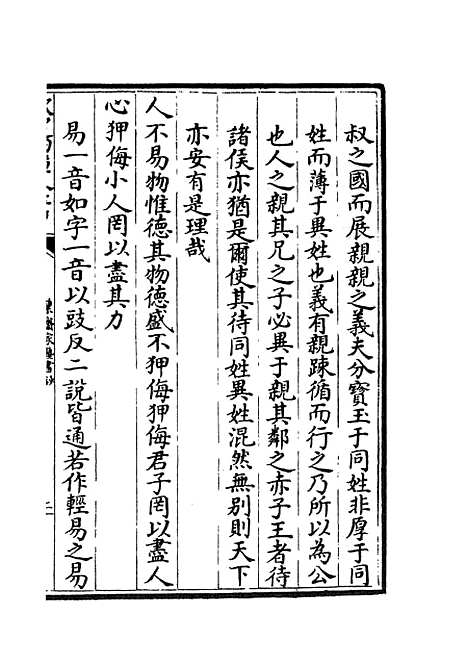 叔之國而展親親之義夫分寶玉于同姓非厚于同
姓而薄于異姓也義有親疎循而行之乃所以為公
也人之親其兄之子必異于親其鄰之赤子王者待
諸侯亦猶是爾使其待同姓異姓混然無别則天下
亦安有是理哉
人不易物惟德其物德盛不狎侮狎侮君子罔以盡人
心狎侮小人罔以盡其力
易一音如字一音以豉反二說皆通若作輕易之易
絜齋家塾書鈔